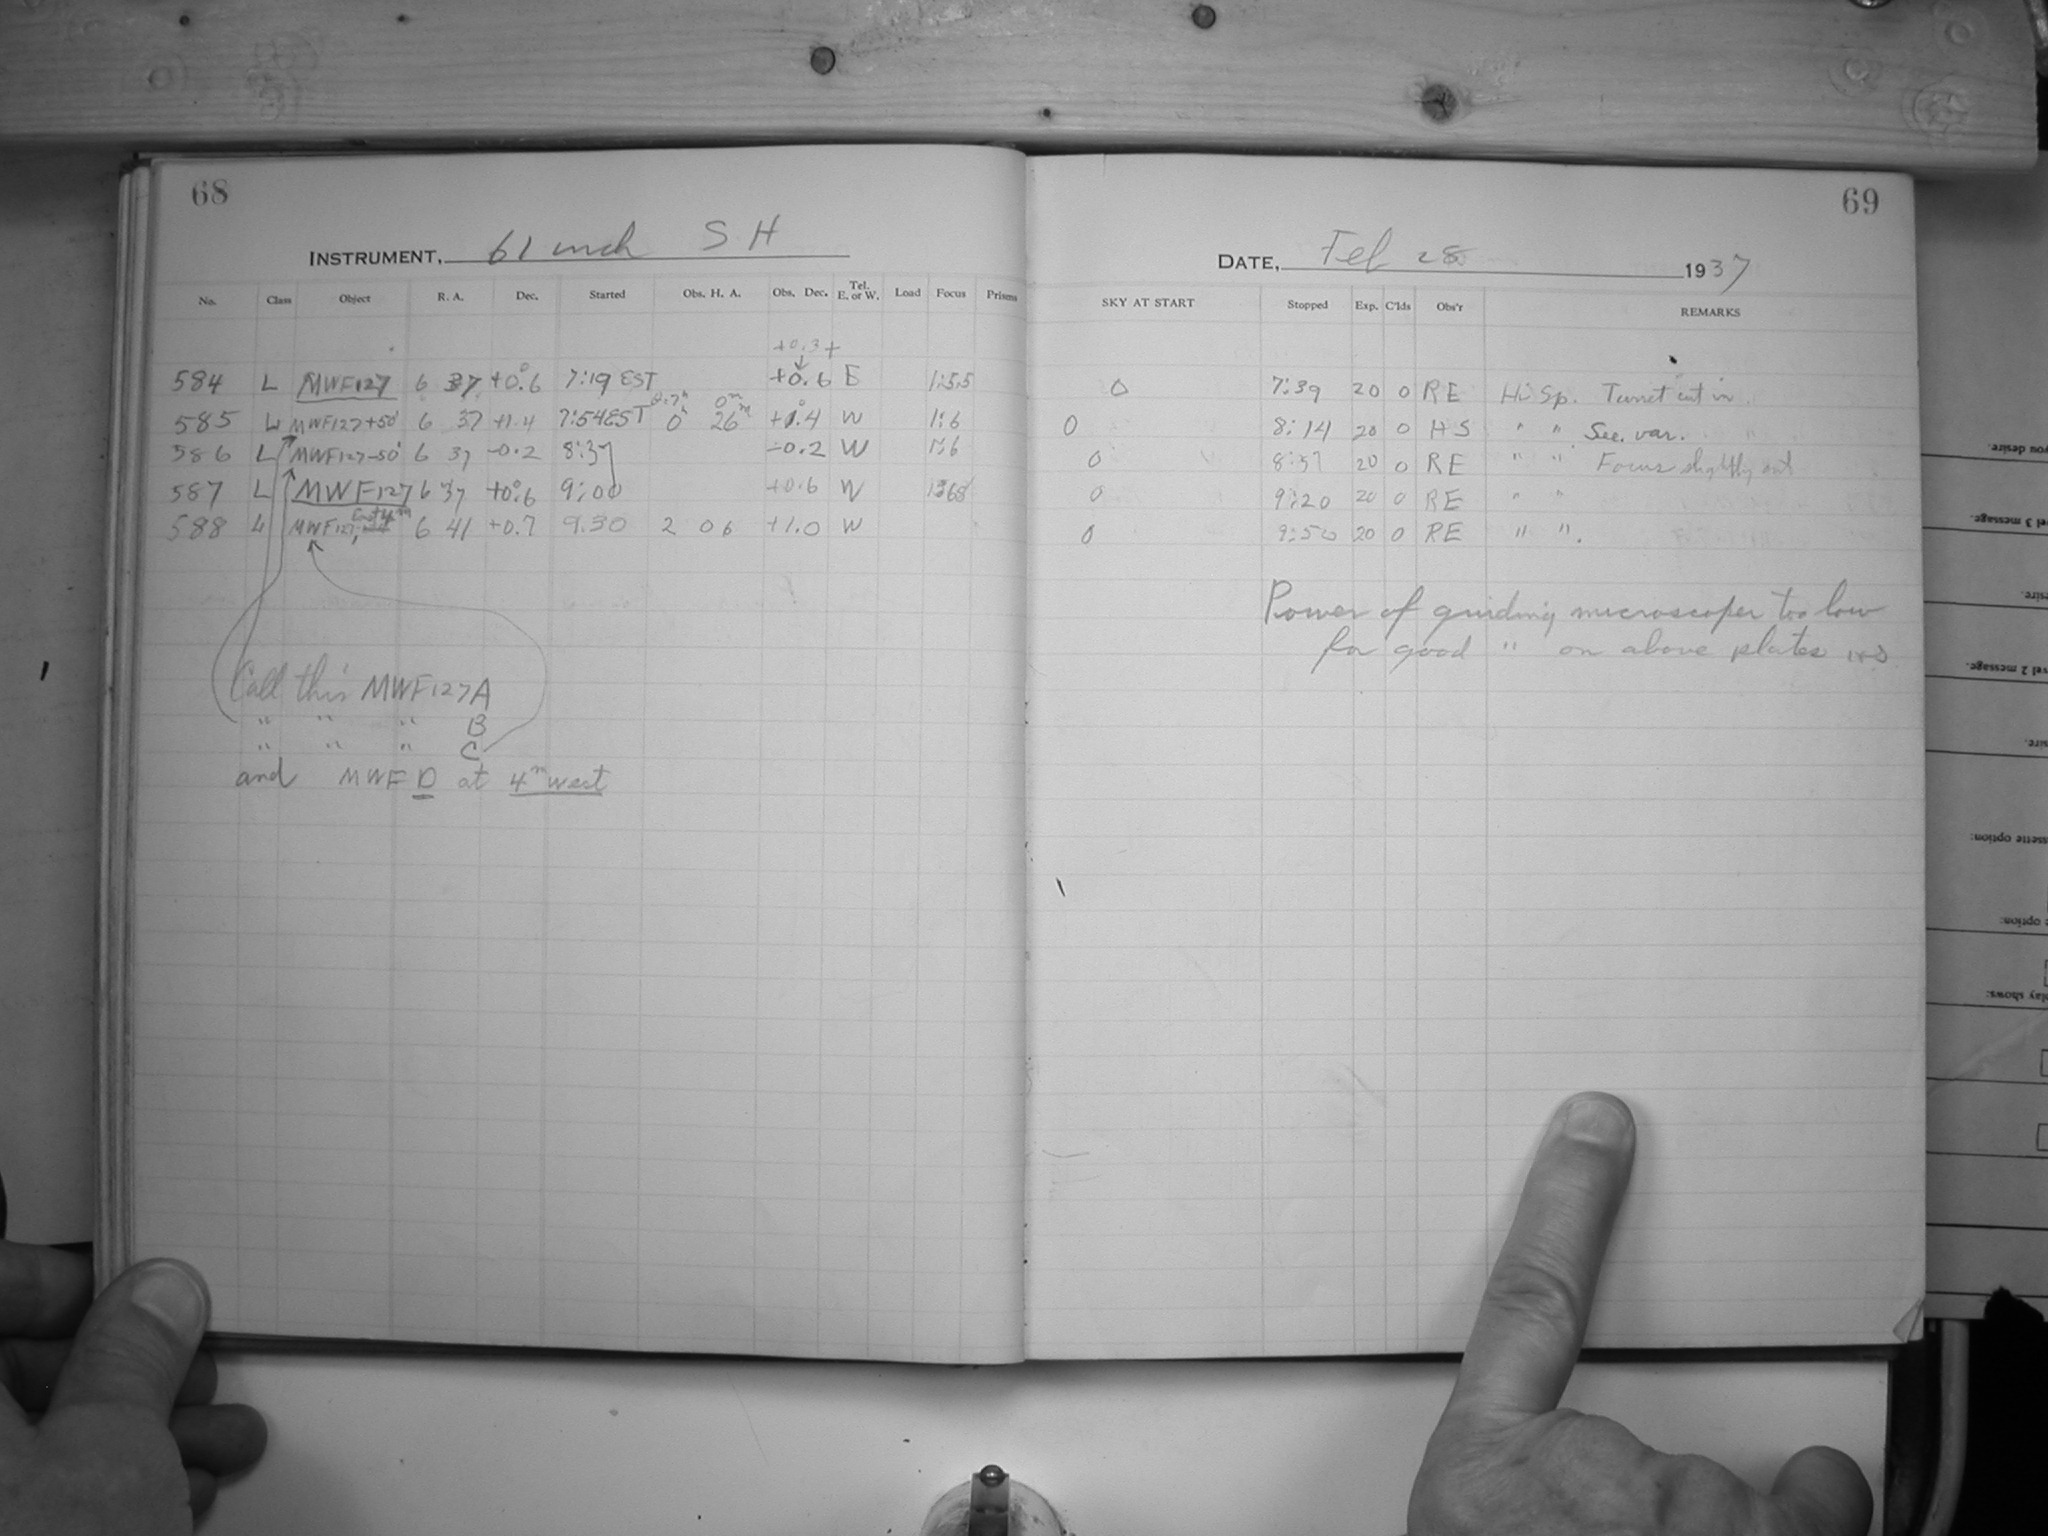 68
INSTRUMENT, 61 inch S H
No. Class Object R. A. Dec. Started Obs. H. A. Obs. Dec. Tel. E. or W. Load Focus Prisms
+0.3+
584 L MWF127 6 37 +0.6 7:19 EST +0.6 E 1:5.5
585 L MWF127+50' 6 37 +1.4 7:54 EST 0h 26m +1.4 W 1:6
586 L MWF127-50' 6 37 -0.2 8:37 -0.2 W 1:6
587 L MWF127 6 37 +0.6 9:00 +0.6 W
588 L MWF127, 6 41 +0.7 9:30 2 06 +1.0 W
Call this MWF127A
" " " B
" " " C
and MWF D at 4m west
69
DATE, Feb 28 1937
SKY AT START Stopped Exp. C'lds Obs'r REMARKS
0 7:39 20 0 RE Hi Sp. cut in
0 8:14 20 0 HS " " See. var.
0 8:57 20 0 RE " " Focus slightly out
0 9:20 20 0 RE " "
0 9:50 20 0 RE " ".
Power of guiding microscope too low
for good " on above plates
you desire.
vel 3 message.
sire.
vel 2 message.
sire.
ssette option:
option:
play shows: